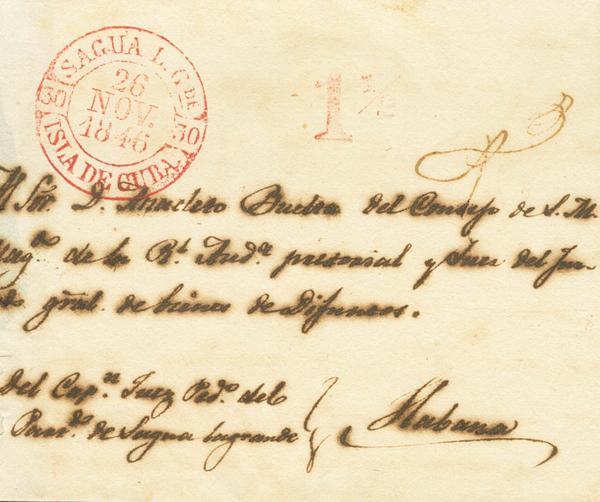 SAGUA L. Gᴰᴱ
30 30
26
NOV.
1846
ISLA DE CUBA.
1½
Sōr. D. Anacleto Buelta del Consejo de S. M.
Magᵈᵒ de la Rˡ. Audᵃ pretorial y Juez del Juz-
do gral. de bienes de Difuntos.
Del Capⁿ Juez Pedᵒ del
Parᵈᵒ de Sagua lagrande
Habana